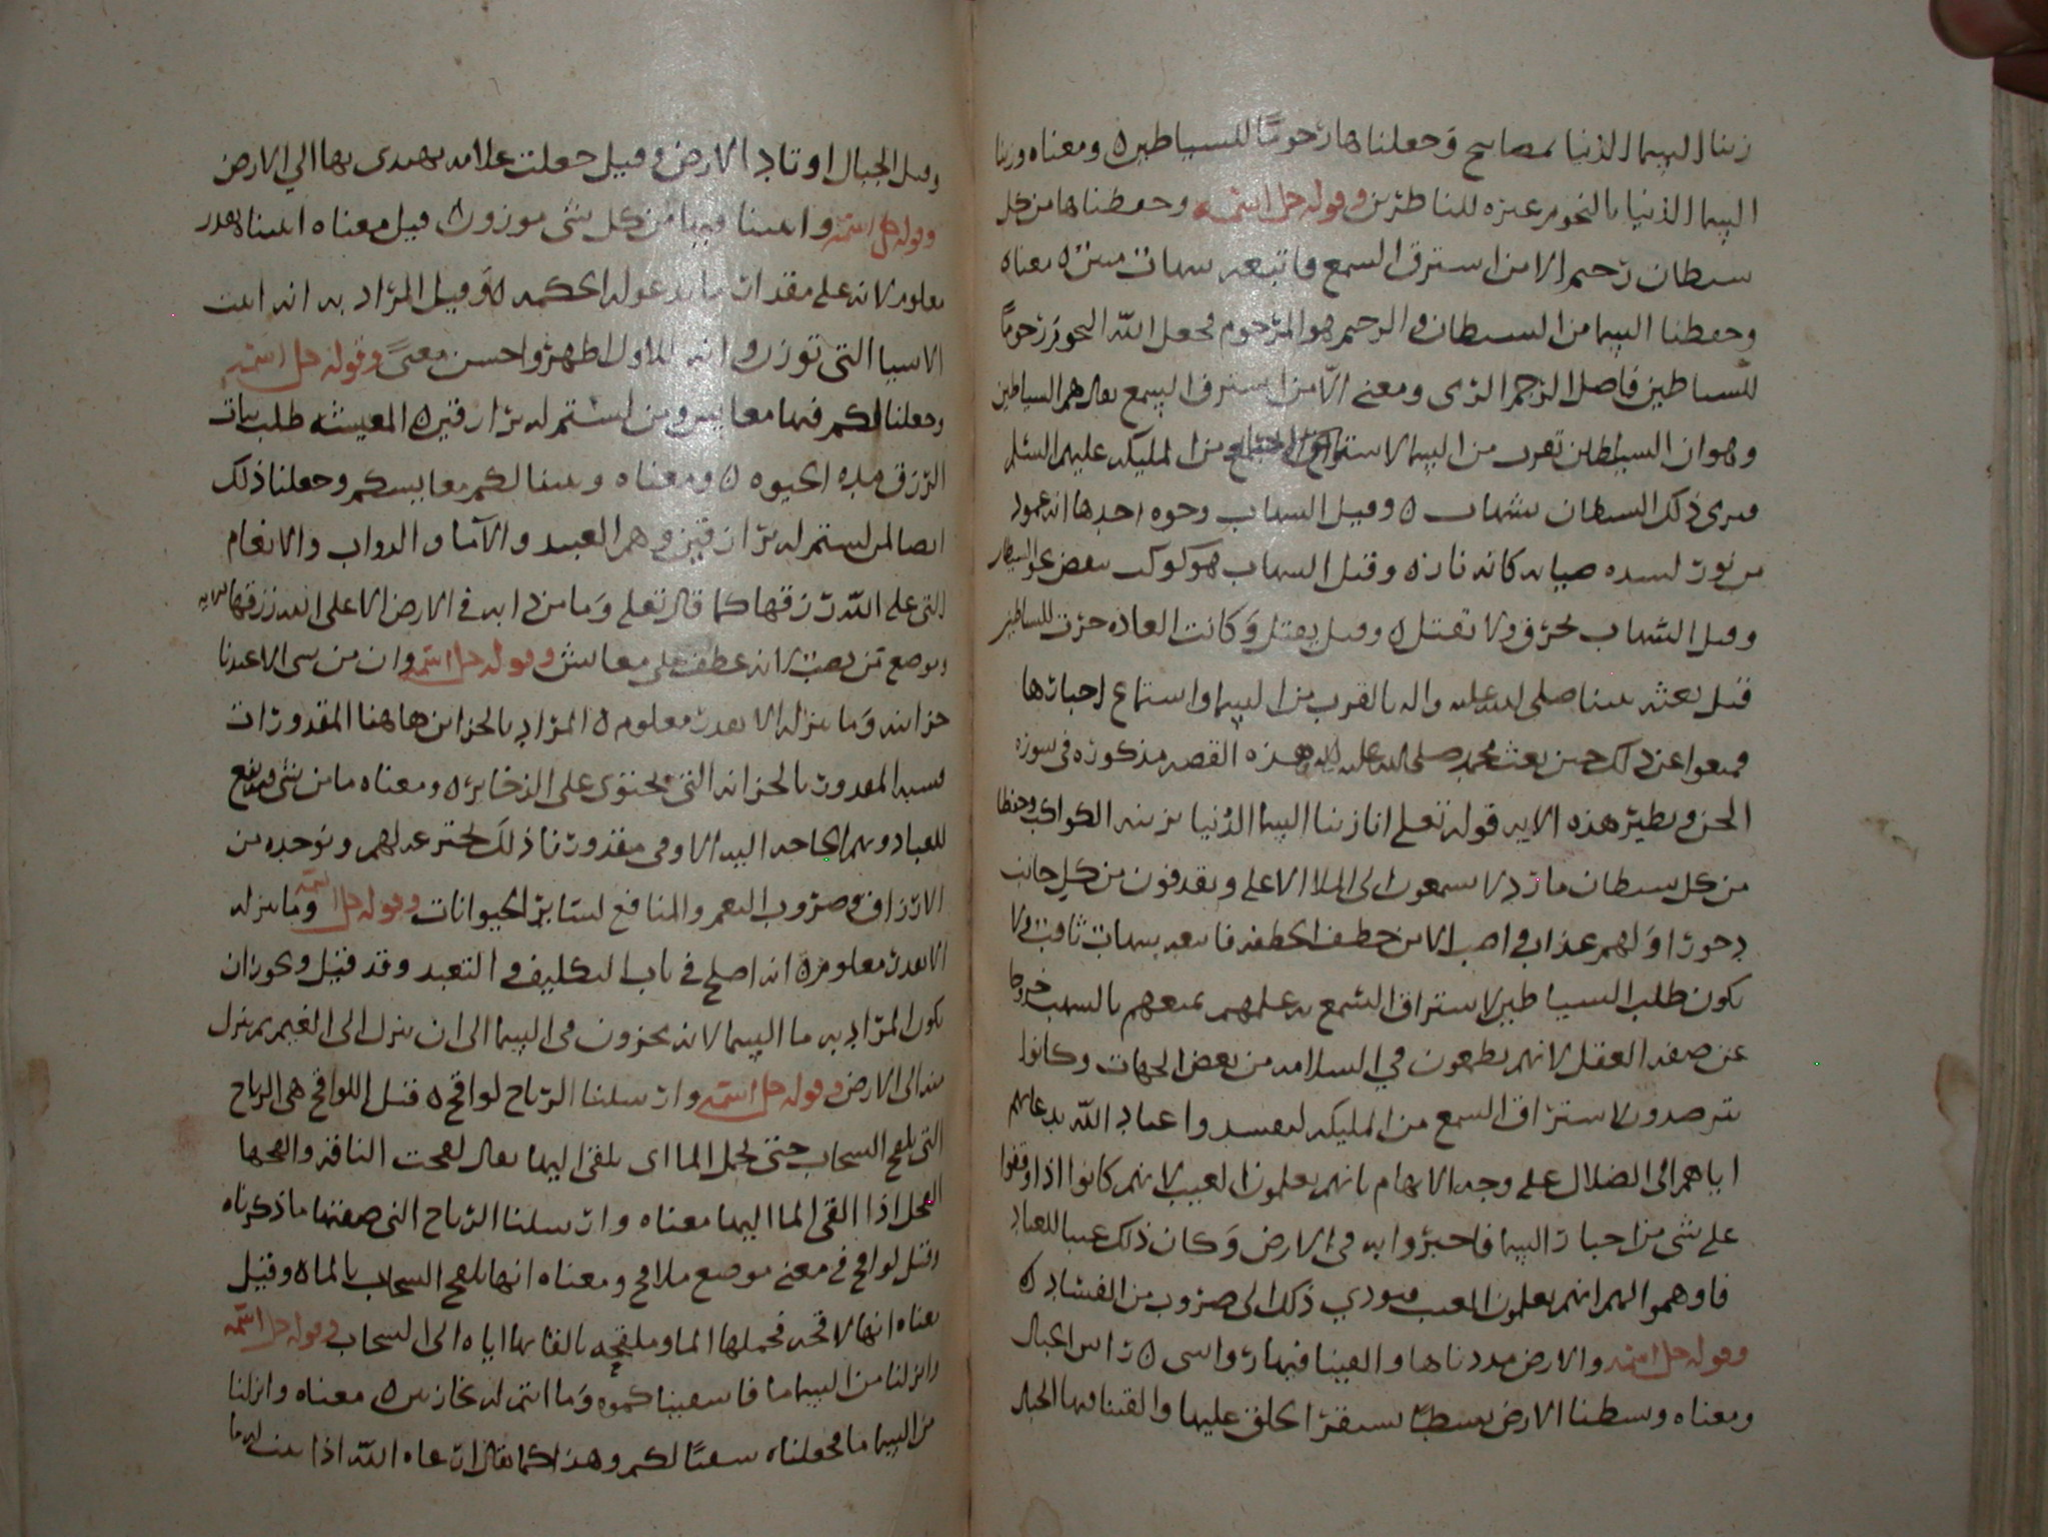 زينا السما الدنيا بمصابيح وجعلناها رجوما للشياطين ٥ ومعناه وزينا
السما الدنيا بالنجوم عبره للناظرين وقوله جل اسمه وحفظناها من كل
شيطان رجيم الا من استرق السمع فاتبعه شهاب مبين ٥ معناه
وحفظنا السما من الشيطان والرجيم هو المرجوم فجعل الله النجوم رجوما
للشياطين فاصل الرجم الرمى ومعنى الا من استرق السمع يعنى هم الشياطين
وهو ان الشيطان تقرب من السما لاستراق من المليكه عليهم السلم
فيرى ذلك الشيطان بشهاب ٥ وقيل الشهاب وجوه احدها انه عمود
من نور لشده ضيايه كانه نار ٥ وقيل الشهاب هو كوكب
وقيل الشهاب يحرق ولا يقتل ٥ وقيل يقتل وكانت العاده جرت للشياطين
قبل بعثه نبينا صلى الله عليه واله بالقرب من السما واستماع اخبارها
فمنعوا عن ذلك حين بعث محمد صلى الله عليه واله وهذه القصه مذكوره فى سوره
الجن ونظير هذه الايه قوله تعلى انا زينا السما الدنيا بزينه الكواكب وحفظا
من كل شيطان مارد لا يسمعون الى الملا الاعلى ويقذفون من كل جانب
دحورا ولهم عذاب واصب الا من خطف الخطفه فاتبعه شهاب ثاقب ولا
يكون طلب الشياطين لاستراق السمع مع علمهم بمنعهم بالشهب خروجا
عن صفه العقل لانهم يطمعون في السلامه من بعض الجهات وكانوا
يترصدون لاستراق السمع من المليكه ليفسدوا عباد الله بدعايهم
اياهم الى الضلال على وجه الايهام بانهم يعلمون الغيب لانهم كانوا اذا وقفوا
على شى من اخبار السما فاخبروا به فى الارض وكان ذلك غيبا للعباد
فاوهموا انهم يعلمون الغيب فيودي ذلك الى ضروب من الفساد ٥
وقوله جل اسمه والارض مددناها والقينا فيها رواسى ٥ رواسى الجبال
ومعناه وبسطنا الارض بسطا يستقر الخلق عليها والقينا فيها الجبال
وقيل الجبال اوتاد الارض وقيل جعلت علامه يهتدى بها الي الارض
وقوله جل اسمه وانبتنا فيها من كل شى موزون ٥ قيل معناه انبتنا بقدر
معلوم لانه على مقدار ما تدعو له الحكمه ٥ وقيل المراد به انه انبت
الاشيا التى توزن والاول اظهر واحسن معنى وقوله جل اسمه
وجعلنا لكم فيها معايش ومن لستم له برازقين ٥ المعيشه طلب اسباب
الرزق مده الحيوه ٥ ومعناه وبينا لكم معايشكم وجعلنا ذلك
ايضا لمن لستم له برازقين وهم العبيد والآما والدواب والانعام
التى على الله رزقها كما قال تعلى وما من دابه فى الارض الا على الله رزقها
وموضع من نصب لانه عطف على معايش وقوله جل اسمه وان من شى الا عندنا
خزاينه وما ننزله الا بقدر معلوم ٥ المراد بالخزاين هاهنا المقدورات
فشبه المقدور بالخزانه التى تحتوى على الذخاير ٥ ومعناه ما من شى ينتفع
للعباد وبهم الحاجه اليه الا وفى مقدورنا ذلك نخترعه لهم ونوجده من
الارزاق وضروب النعم والمنافع لساير الحيوانات وقوله جل اسمه وما ننزله
الا بقدر معلوم ٥ انه اصلح فى باب التكليف والتعبد وقد قيل ويجوز ان
يكون المراد به ما السما لانه يخزون فى السما الى ان ينزل الى الغيم ثم ينزل
منه الى الارض وقوله جل اسمه وارسلنا الرياح لواقح ٥ قيل اللواقح هى الرياح
التى تلقح السحاب حتى يحمل الما اى يلقى اليها يقال لقحت الناقه والقحها
الفحل اذا القى الما اليها معناه وارسلنا الرياح التى صفتها ما ذكرناه
وقيل لواقح فى معنى موضع ملاقح ومعناه انها تلقح السحاب بالما ٥ وقيل
معناه انها لاقحه فحملها الما وملقحه بالقايها اياه الى السحاب وقوله جل اسمه
وانزلنا من السما ما فاسقيناكموه وما انتم له بخازنين ٥ معناه وانزلنا
من السما ما فجعلناه سقيا لكم وهذا كما يقال ارعاه الله اذا